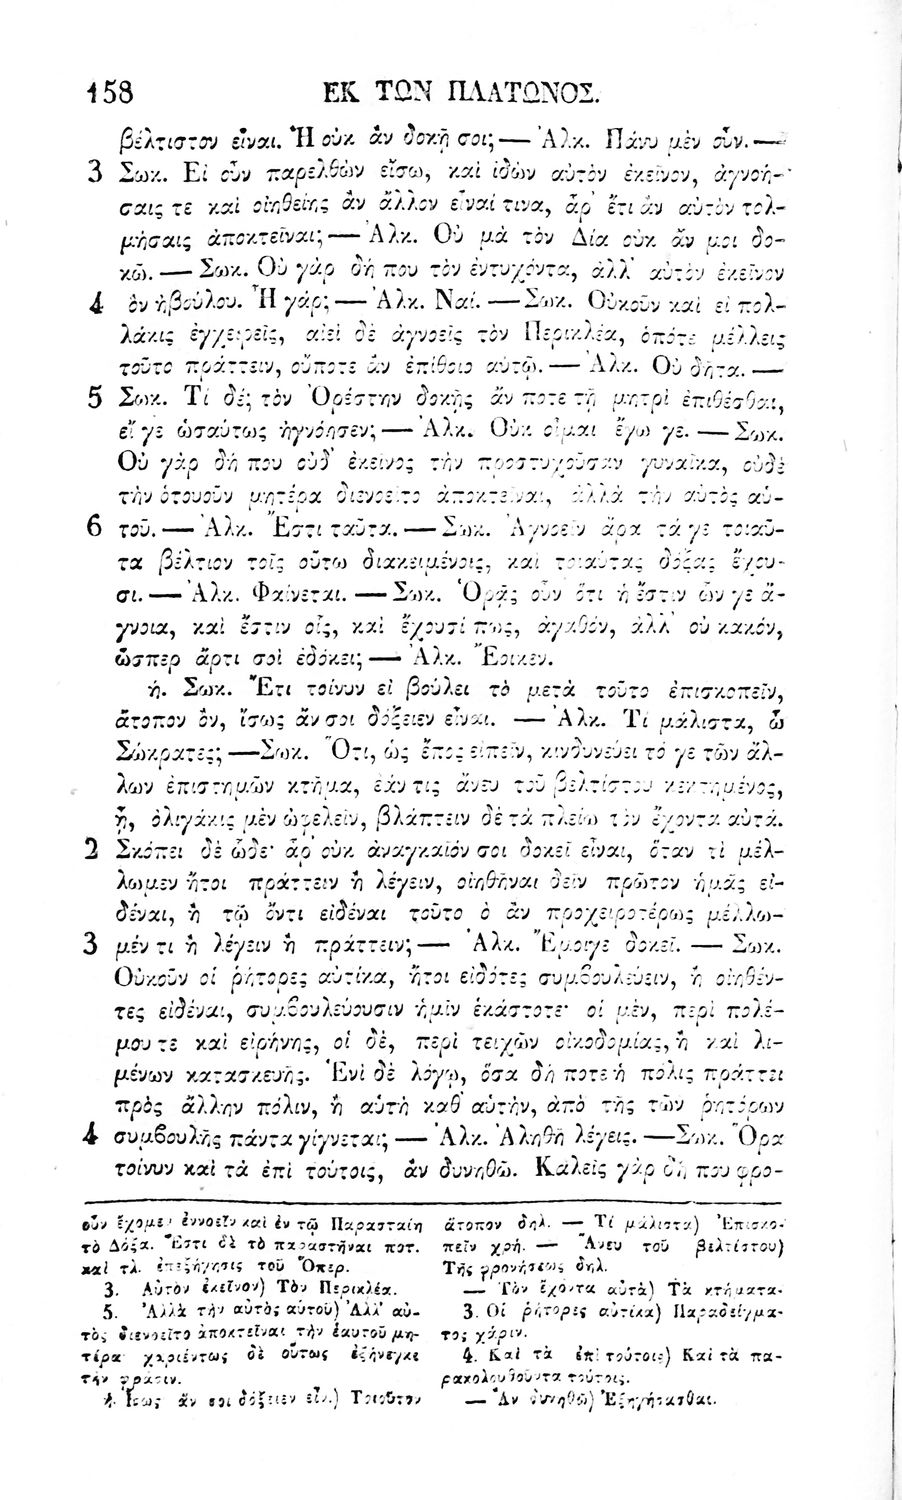 158 ΕΚ ΤΩΝ ΠΛΑΤΩΝΟΣ.
βέλτιστον εἶναι. Ἢ οὐκ ἂν δοκῇ σοι; — Ἀλκ. Πάνυ μὲν οὖν. —
3 Σωκ. Εἰ οὖν παρελθὼν εἴσω, καὶ ἰδὼν αὐτὸν ἐκεῖνον, ἀγνοή-
σαις τε καὶ οἰηθείης ἂν ἄλλον εἶναί τινα, ἆρ' ἔτι ἂν αὐτὸν τολ-
μήσαις ἀποκτεῖναι; — Ἀλκ. Οὐ μὰ τὸν Δία οὐκ ἄν μοι δο-
κῶ. — Σωκ. Οὐ γὰρ δή που τὸν ἐντυχόντα, ἀλλ' αὐτὸν ἐκεῖνον
4 ὃν ἠβούλου. Ἦ γάρ; — Ἀλκ. Ναί. — Σωκ. Οὐκοῦν καὶ εἰ πολ-
λάκις ἐγχειρεῖς, αἰεὶ δὲ ἀγνοεῖς τὸν Περικλέα, ὁπότε μέλλεις
τοῦτο πράττειν, οὔποτε ἂν ἐπίθοιο αὐτῷ. — Ἀλκ. Οὐ δῆτα. —
5 Σωκ. Τί δέ; τὸν Ὀρέστην δοκῇς ἄν ποτε τῇ μητρὶ ἐπιθέσθαι,
εἴ γε ὡσαύτως ἠγνόησεν; — Ἀλκ. Οὐκ οἶμαι ἔγω γε. — Σωκ.
Οὐ γὰρ δή που οὐδ' ἐκεῖνος τὴν προστυχοῦσαν γυναῖκα, οὐδὲ
τὴν ὁτουοῦν μητέρα διενοεῖτο ἀποκτεῖναι, ἀλλὰ τὴν αὐτὸς αὑ-
6 τοῦ. — Ἀλκ. Ἔστι ταῦτα. — Σωκ. Ἀγνοεῖν ἄρα τά γε τοιαῦ-
τα βέλτιον τοῖς οὕτω διακειμένοις, καὶ τοιαύτας δόξας ἔχου-
σι. — Ἀλκ. Φαίνεται. — Σωκ. Ὁρᾷς οὖν ὅτι ἡ ἔστιν ὧν γε ἄ-
γνοια, καὶ ἔστιν οἷς, καὶ ἔχουσί πως, ἀγαθόν, ἀλλ' οὐ κακόν,
ὥσπερ ἄρτι σοὶ ἐδόκει; — Ἀλκ. Ἔοικεν.
ή. Σωκ. Ἔτι τοίνυν εἰ βούλει τὸ μετὰ τοῦτο ἐπισκοπεῖν,
ἄτοπον ὂν, ἴσως ἄν σοι δόξειεν εἶναι. — Ἀλκ. Τί μάλιστα, ὦ
Σώκρατες; — Σωκ. Ὅτι, ὡς ἔπος εἰπεῖν, κινδυνεύει τό γε τῶν ἄλ-
λων ἐπιστημῶν κτῆμα, ἐάν τις ἄνευ τοῦ βελτίστου κεκτημένος,
ᾖ, ὀλιγάκις μὲν ὠφελεῖν, βλάπτειν δὲ τὰ πλείω τὸν ἔχοντα αὐτά.
2 Σκόπει δὲ ὧδε· ἆρ' οὐκ ἀναγκαῖόν σοι δοκεῖ εἶναι, ὅταν τὶ μέλ-
λωμεν ἤτοι πράττειν ἢ λέγειν, οἰηθῆναι δεῖν πρῶτον ἡμᾶς εἰ-
δέναι, ἢ τῷ ὄντι εἰδέναι τοῦτο ὃ ἂν προχειροτέρως μέλλω-
3 μέν τι ἢ λέγειν ἢ πράττειν; — Ἀλκ. Ἔμοιγε δοκεῖ. — Σωκ.
Οὐκοῦν οἱ ῥήτορες αὐτίκα, ἤτοι εἰδότες συμβουλεύειν, ἢ οἰηθέν-
τες εἰδέναι, συμβουλεύουσιν ἡμῖν ἑκάστοτε· οἱ μὲν, περὶ πολέ-
μου τε καὶ εἰρήνης, οἱ δὲ, περὶ τειχῶν οἰκοδομίας, ἢ καὶ λι-
μένων κατασκευῆς. Ἑνὶ δὲ λόγῳ, ὅσα δή ποτε ἡ πόλις πράττει
πρὸς ἄλλην πόλιν, ἢ αὐτὴ καθ' αὑτὴν, ἀπὸ τῆς τῶν ῥητόρων
4 συμβουλῆς πάντα γίγνεται; — Ἀλκ. Ἀληθῆ λέγεις. — Σωκ. Ὅρα
τοίνυν καὶ τὰ ἐπὶ τούτοις, ἂν δυνηθῶ. Καλεῖς γὰρ δή που φρο-
οὖν ἔχομε· ἐννοεῖν καὶ ἐν τῷ Παρασταίη
τὸ Δόξα. Ἔστι δὲ τὸ παραστῆναι ποτ.
καὶ τλ. ἐπεξήγησις τοῦ Ὅπερ.
3. Αὐτὸν ἐκεῖνον) Τὸν Περικλέα.
5. Ἀλλὰ τὴν αὐτὸς αὑτοῦ) Ἀλλ' αὐ-
τὸς διενοεῖτο ἀποκτεῖναι τὴν ἑαυτοῦ μη-
τέρα· χαριέντως δὲ οὕτως ἐξήνεγκε
τὴν φράσιν.
ή. Ἴσως ἄν σοι δόξειεν εἶν.) Τοιοῦτον
ἄτοπον δηλ. — Τί μάλιστα) Ἐπισκο-
πεῖν χρή. — Ἄνευ τοῦ βελτίστου)
Τῆς φρονήσεως δηλ.
— Τὸν ἔχοντα αὐτὰ) Τὰ κτήματα.
3. Οἱ ῥήτορες αὐτίκα) Παραδείγμα-
τος χάριν.
4. Καὶ τὰ ἐπὶ τούτοις) Καὶ τὰ πα-
ρακολουθοῦντα τούτοις.
— Ἂν δυνηθῶ) Ἐξηγήσασθαι.